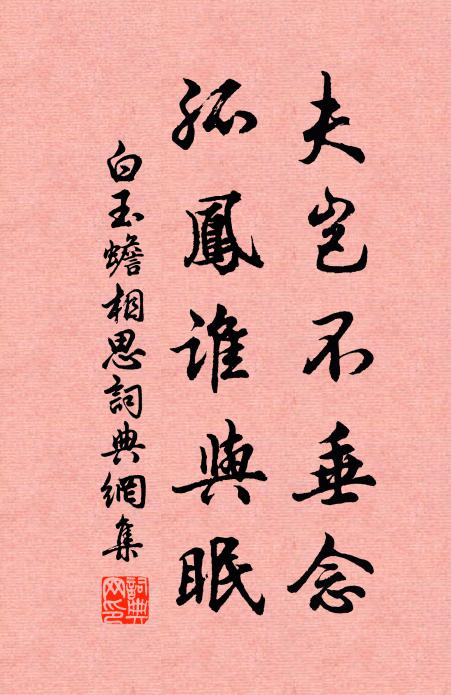 夫岂不垂念
孤鳳谁與眠
白玉蟾相思詞典網集
詞典网印